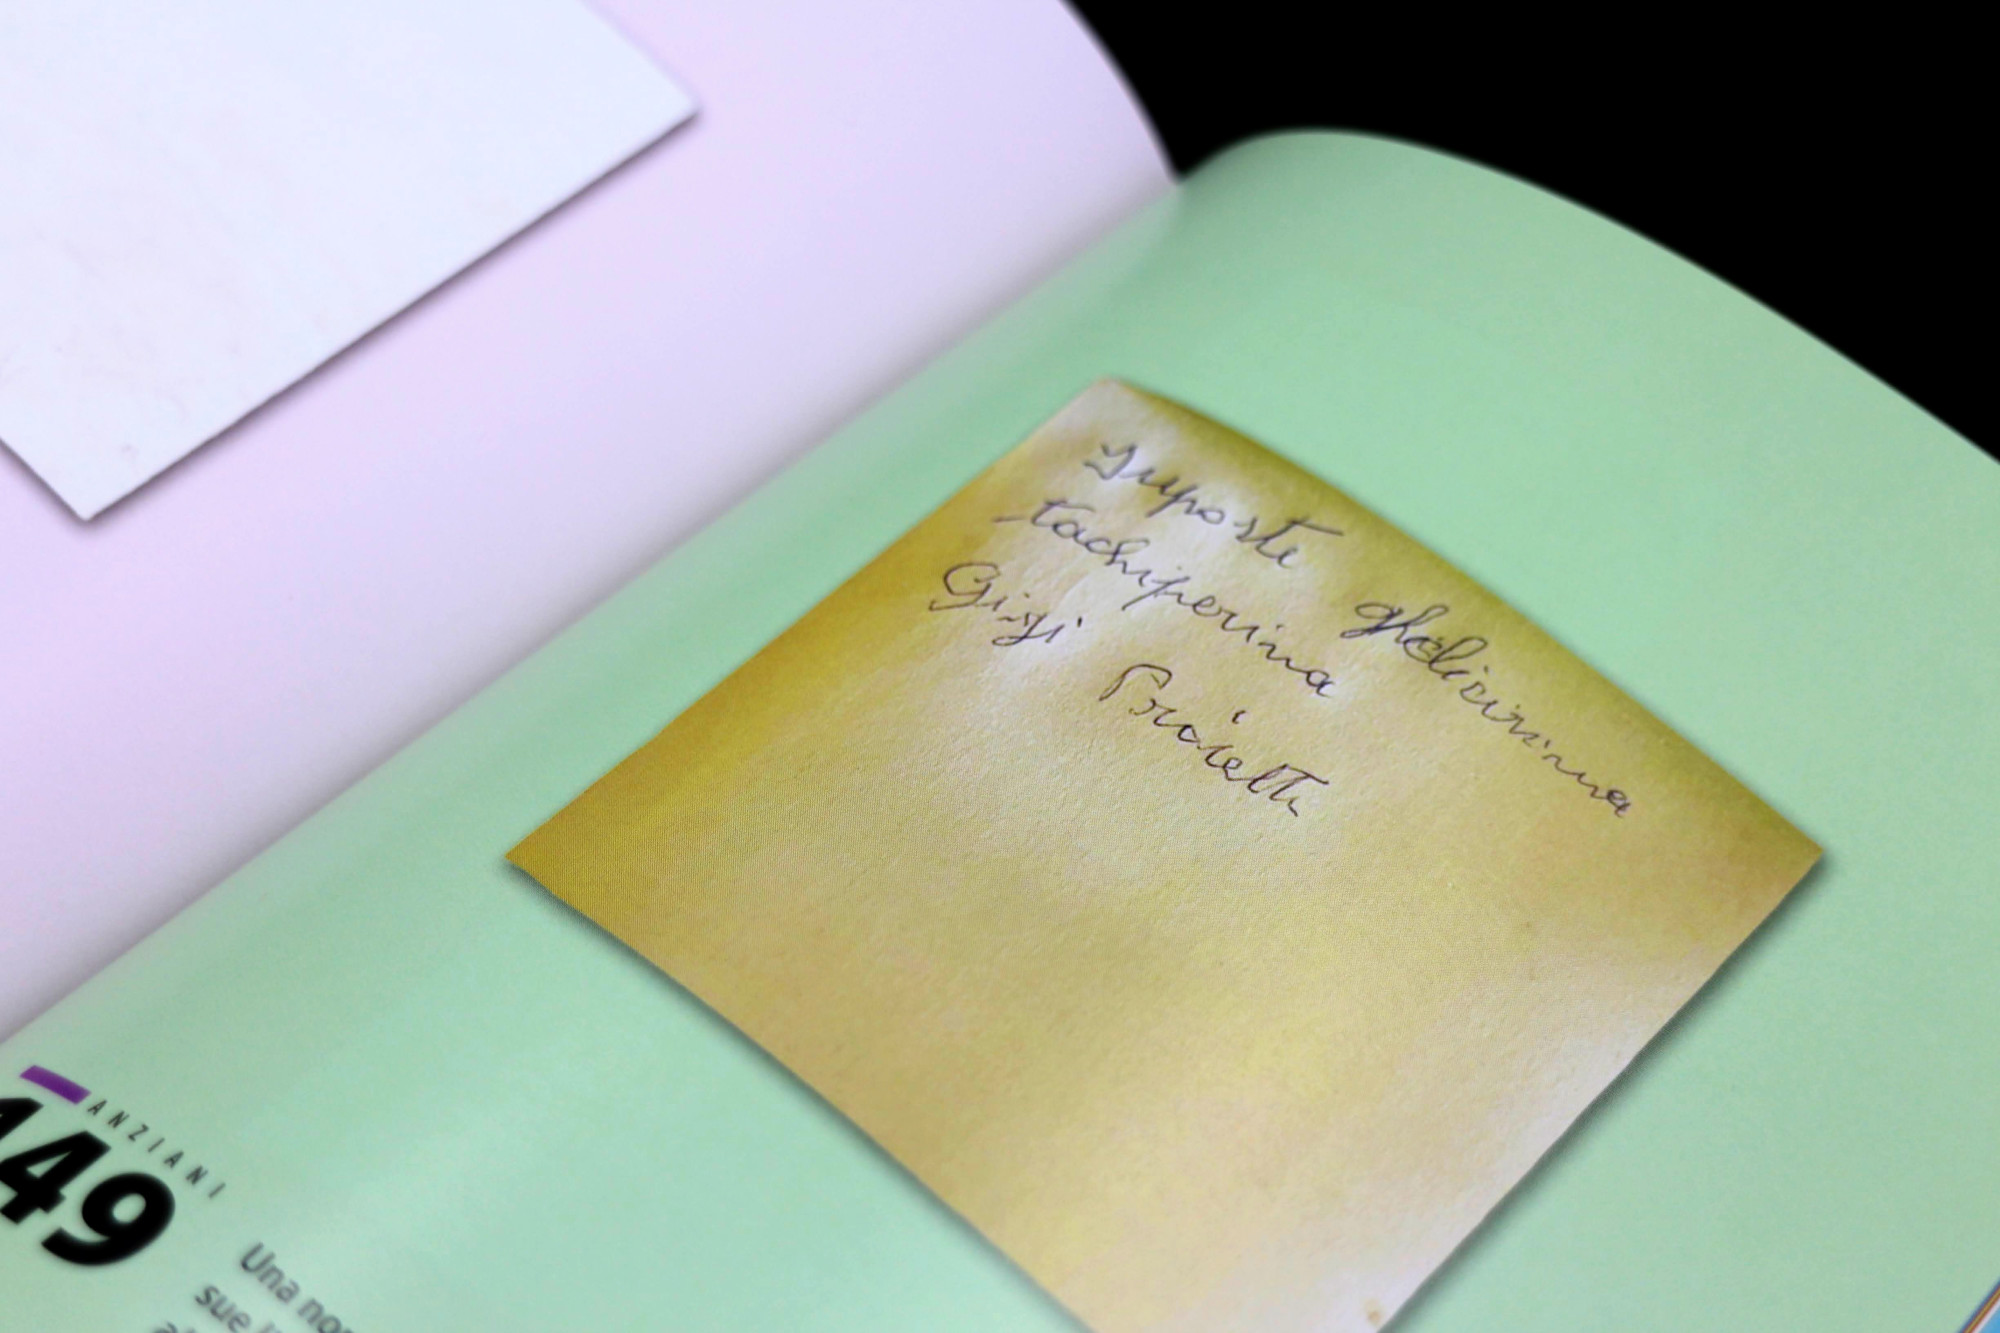 supposte ghelicirinna
tachiperina
Gigi Proietti
ANZIANI
149
Una non
sue